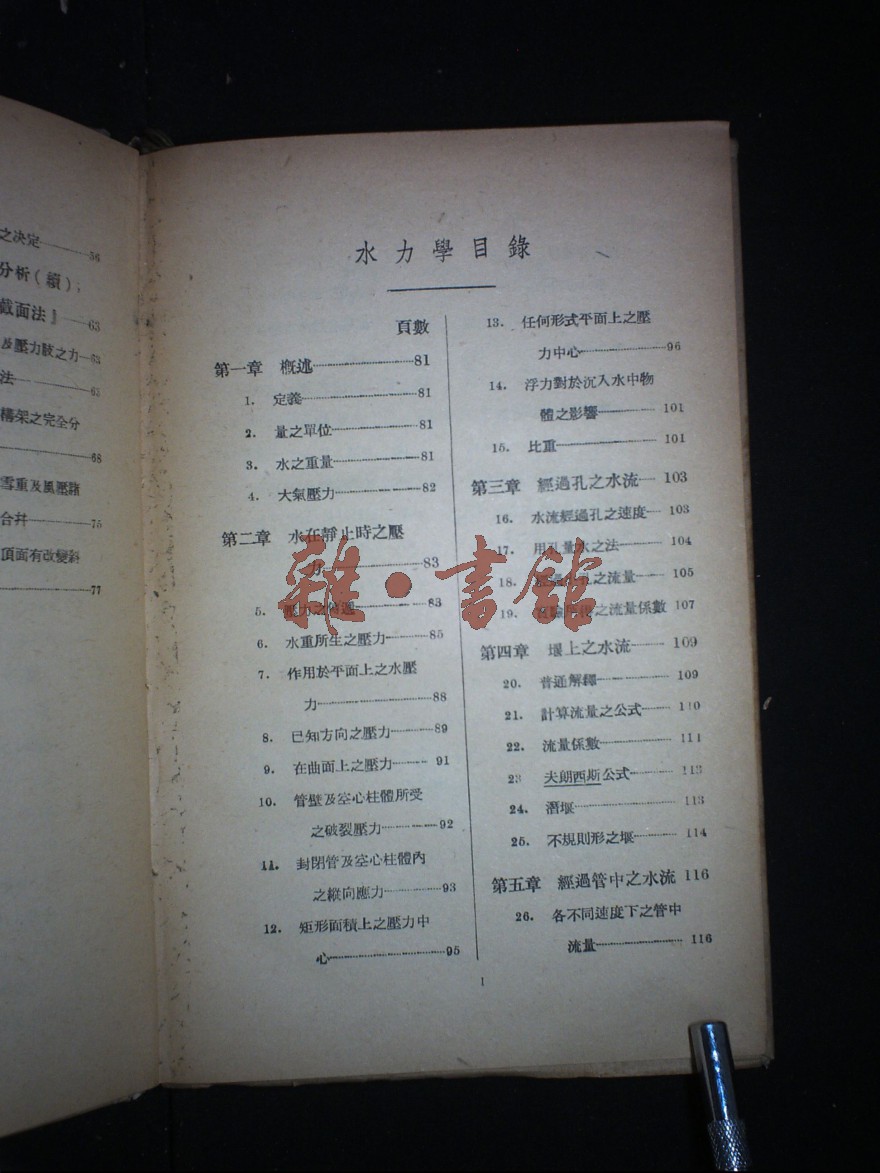 之决定 56
分析(續),
截面法』 63
及壓力肢之力 63
法 65
構架之完全分
68
雪重及風壓諸
合幷 75
頂面有改變斜
77
水力學目錄
頁數
第一章 概述 81
1. 定義 81
2. 量之單位 81
3. 水之重量 81
4. 大氣壓力 82
第二章 水在靜止時之壓
力 83
5. 壓力之 83
6. 水重所生之壓力 85
7. 作用於平面上之水壓
力 88
8. 已知方向之壓力 89
9. 在曲面上之壓力 91
10. 管壁及空心柱體所受
之破裂壓力 92
11. 封閉管及空心柱體內
之縱向應力 93
12. 矩形面積上之壓力中
心 95
13. 任何形式平面上之壓
力中心 96
14. 浮力對於沉入水中物
體之影響 101
15. 比重 101
第三章 經過孔之水流 103
16. 水流經過孔之速度 103
17. 用孔量水之法 104
18. 經過 孔之流量 105
19. 之流量係數 107
第四章 堰上之水流 109
20. 普通解釋 109
21. 計算流量之公式 110
22. 流量係數 111
23 夫朗西斯公式 113
24. 潛堰 113
25. 不規則形之堰 114
第五章 經過管中之水流 116
26. 各不同速度下之管中
流量 116
1
雜·書館